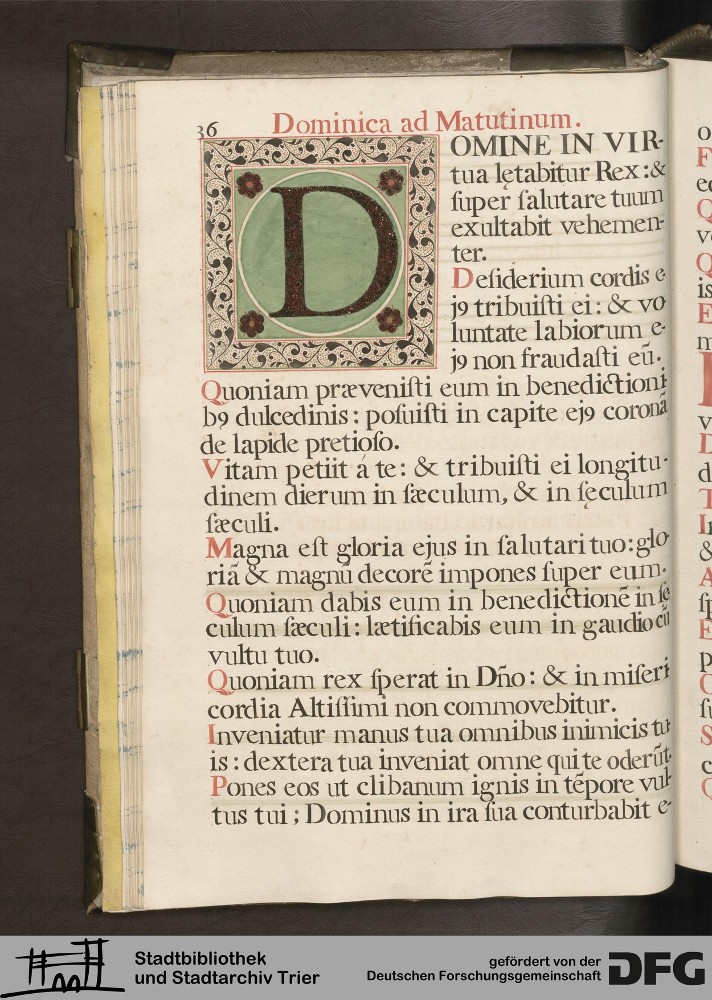 36 Dominica ad Matutinum.
DOMINE IN VIR-
tua lętabitur Rex: &
ſuper ſalutare tuum
exultabit vehemen-
ter.
Deſiderium cordis e-
j9 tribuiſti ei: & vo
luntate labiorum e-
j9 non fraudaſti eū.
Quoniam præveniſti eum in benedictioni-
b9 dulcedinis: poſuiſti in capite ej9 coronā
de lapide pretioſo.
Vitam petiit á te: & tribuiſti ei longitu-
dinem dierum in ſæculum, & in ſęculum
ſæculi.
Magna eſt gloria ejus in ſalutari tuo: glo-
riā & magnū decorē impones ſuper eum.
Quoniam dabis eum in benedictionē in ſę
culum ſæculi: lætificabis eum in gaudio cū
vultu tuo.
Quoniam rex ſperat in Dn̄o: & in miſeri
cordia Altiſſimi non commovebitur.
Inveniatur manus tua omnibus inimicis tu-
is: dextera tua inveniat omne qui te oderūt.
Pones eos ut clibanum ignis in tēpore vul-
tus tui; Dominus in ira ſua conturbabit e-
Stadtbibliothek
und Stadtarchiv Trier
gefördert von der
Deutschen Forschungsgemeinschaft
DFG